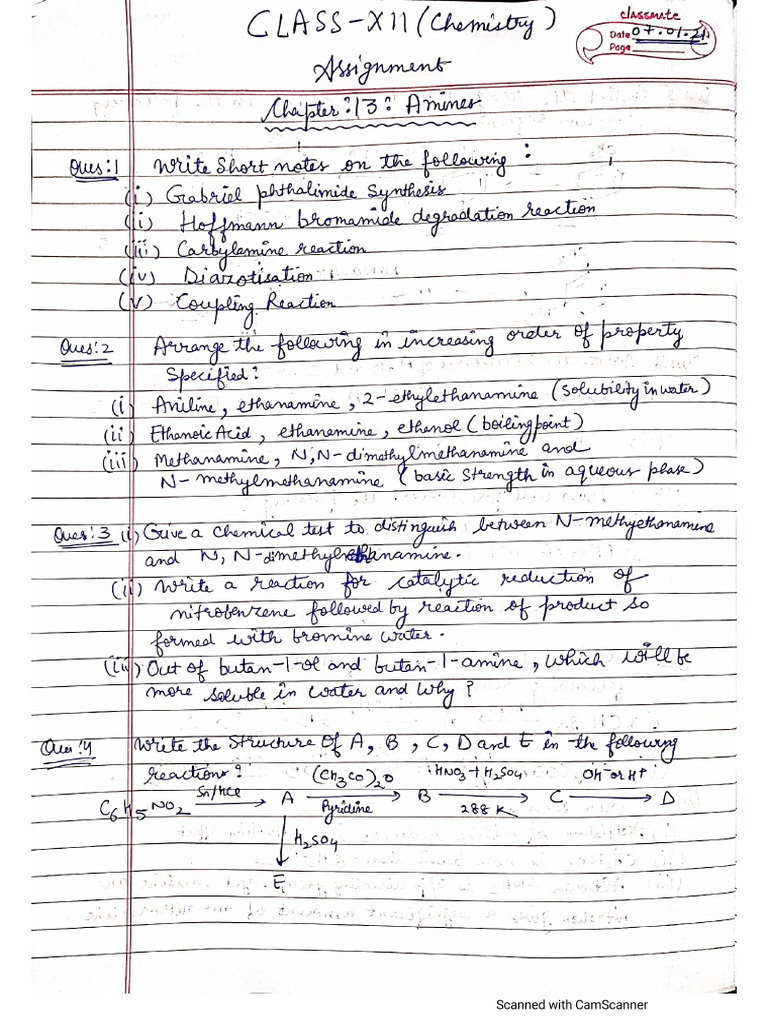 CLASS-XII (Chemistry)
classmate
Date 07.01.21
Page
Assignment
Chapter:13: Amines
Ques:1 Write Short notes on the following:
(i) Gabriel phthalimide Synthesis
(i) Hoffmann bromamide degradation reaction
(iii) Carbylamine reaction
(iv) Diazotisation
(v) Coupling Reaction
Ques:2 Arrange the following in increasing order of property
Specified?
(i) Aniline, ethanamine, 2-ethylethanamine (solubility in water)
(ii) Ethanoic Acid, ethanamine, ethanol (boiling point)
(iii) Methanamine, N,N-dimethylmethanamine and
N-methylmethanamine (basic strength in aqueous phase)
Ques:3 (i) Give a chemical test to distinguish between N-methyethanamine
and N,N-dimethylethanamine.
(ii) Write a reaction for catalytic reduction of
nitrobenzene followed by reaction of product so
formed with bromine water.
(iii) Out of butan-1-ol and butan-1-amine, which will be
more soluble in water and why?
Ques:4 Write the structure of A, B, C, D and E in the following
reactions?
C6H5NO2 Sn/HCl → A (CH3CO)2O Pyridine → B HNO3+H2SO4 288K → C OH- or H+ → D
↓ H2SO4
E
Scanned with CamScanner